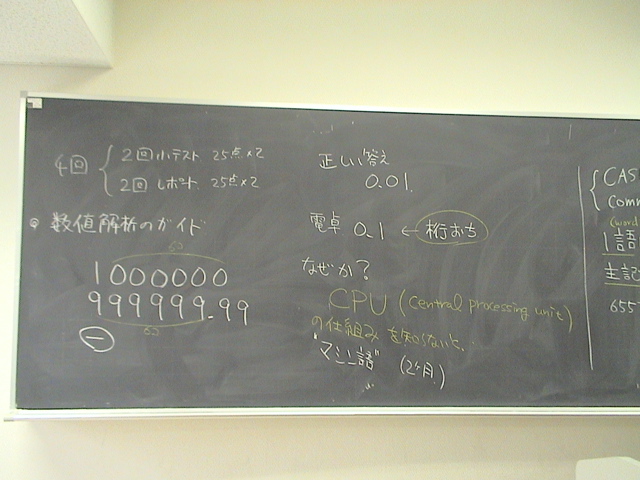 4回
2回小テスト 25点×2
2回レポート 25点×2
数値解析のガイド
6コ
1000000
999999.99
6コ
−
正しい答え
0.01
電卓 0.1 ← 桁おち
なぜか?
CPU (central processing unit)
の仕組みを知らないと、
"マシン語" (2ヶ月)
CAS
Comm
(word
1語
主記
655